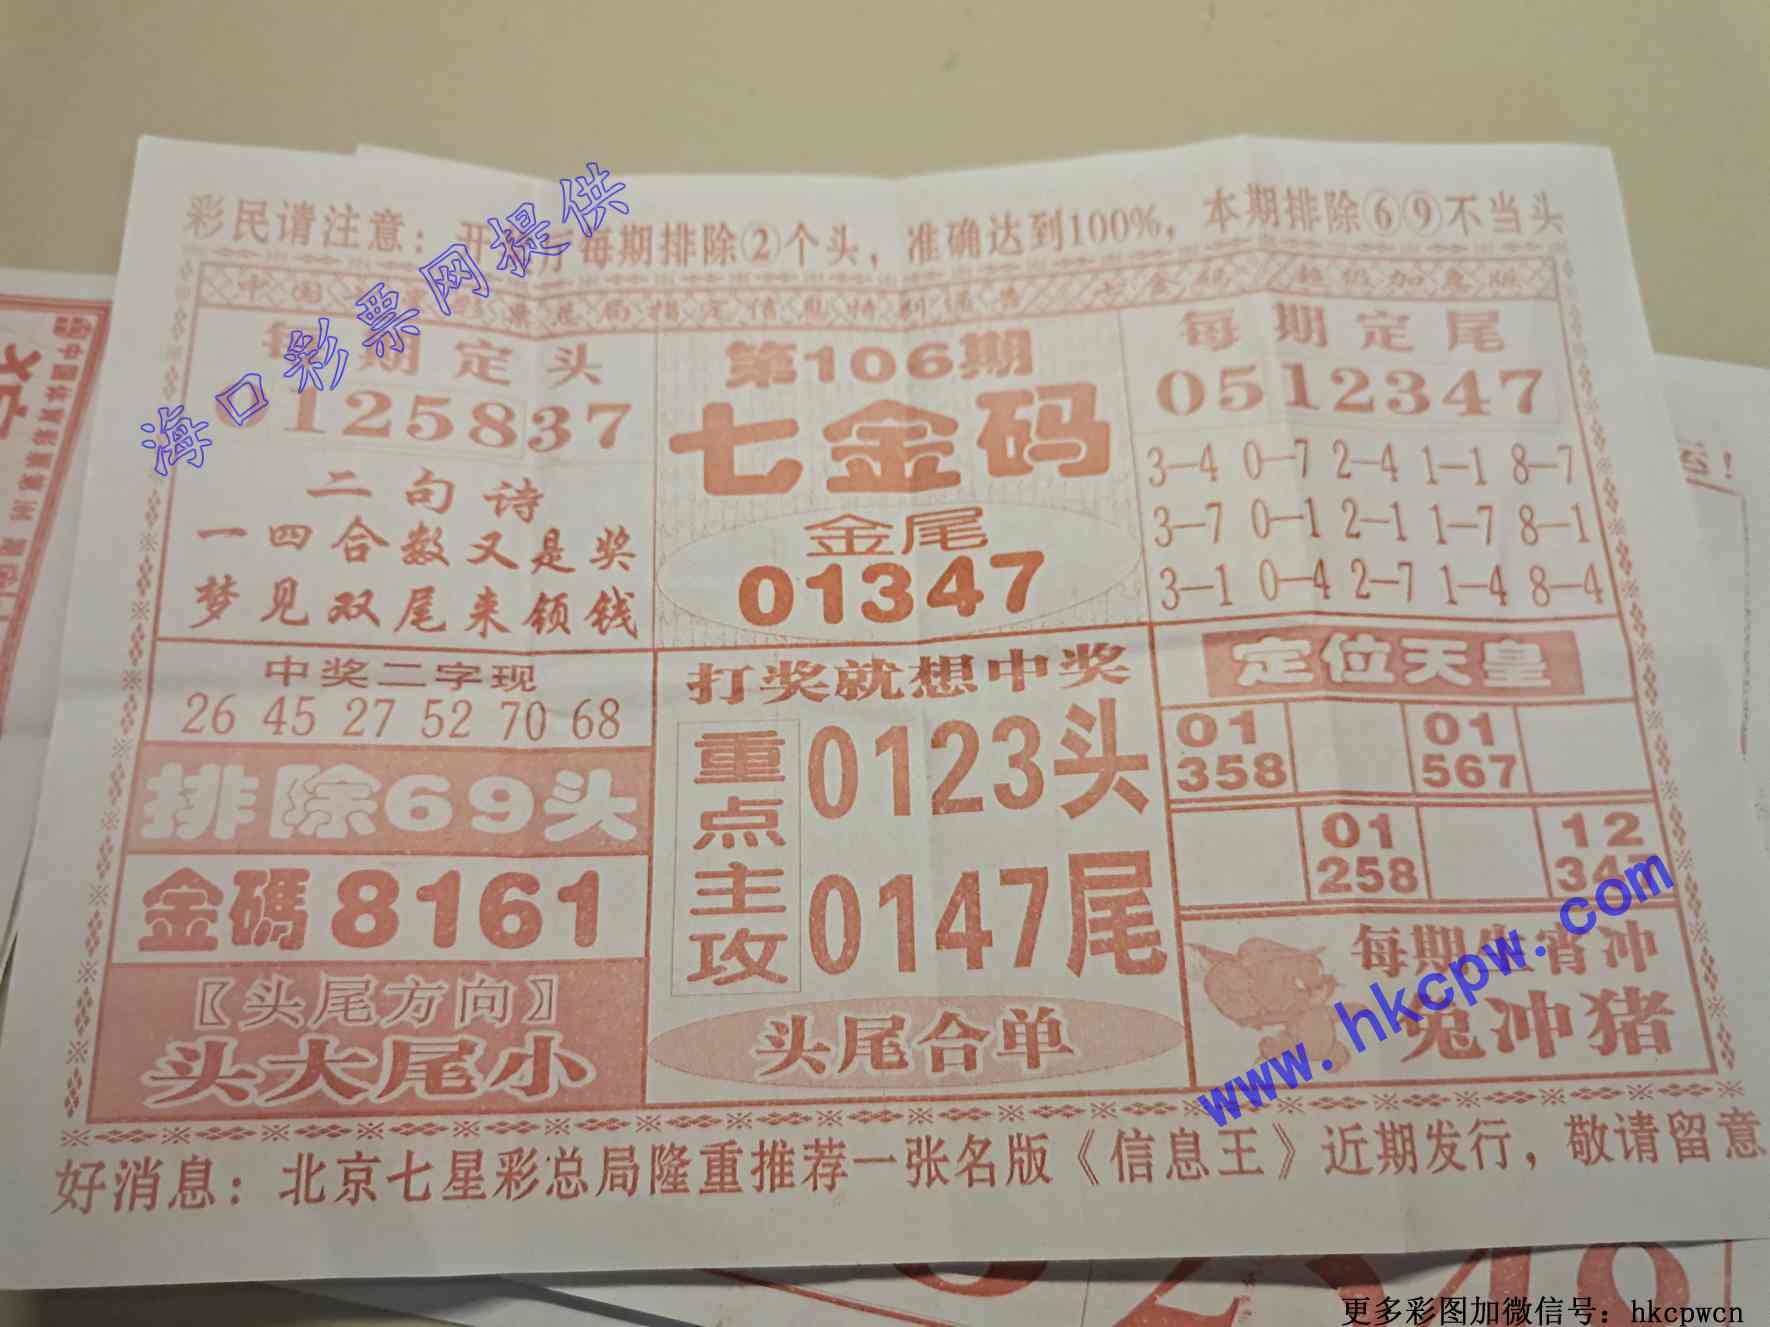 海口彩票网提供
彩民请注意：开 每期排除②个头，准确达到100%，本期排除⑥⑨不当头
中国 票总局指定信息特别报告 七金码 超级加急版
每期定头
0125837
二句诗
一四合数又是奖
梦见双尾来领钱
第106期
七金码
金尾
01347
每期定尾
0512347
3—4 0—7 2—4 1—1 8—7
3—7 0—1 2—1 1—7 8—1
3—1 0—4 2—7 1—4 8—4
中奖二字现
26 45 27 52 70 68
排除69头
金碼8161
〖头尾方向〗
头大尾小
打奖就想中奖
重点主攻
0123头
0147尾
头尾合单
定位天皇
01 01
358 567
01 12
258 347
每期生宵冲
兔冲猪
www.hkcpw.com
好消息：北京七星彩总局隆重推荐一张名版《信息王》近期发行，敬请留意
更多彩图加微信号：hkcpwcn